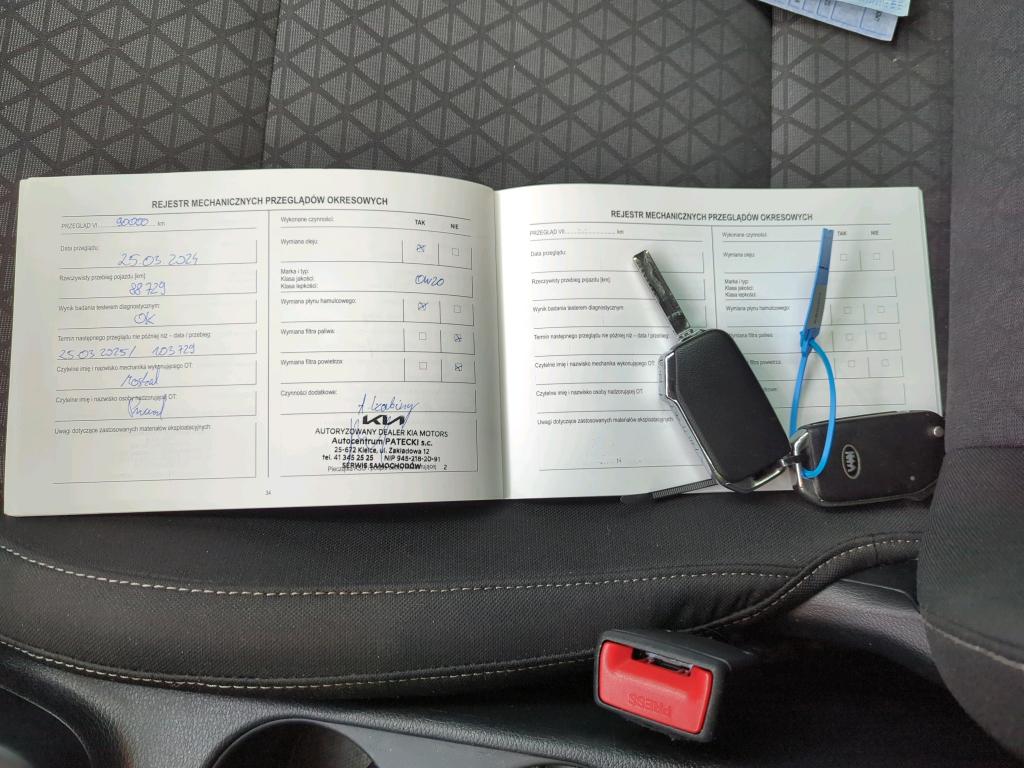 REJESTR MECHANICZNYCH PRZEGLĄDÓW OKRESOWYCH
PRZEGLĄD VI 90000 km
Data przeglądu:
25.03.2024
Rzeczywisty przebieg pojazdu [km]
88729
Wynik badania testerem diagnostycznym:
OK
Termin następnego przeglądu nie później niż – data / przebieg:
25.03.2025/ 103729
Czytelne imię i nazwisko mechanika wykonującego OT:
Czytelne imię i nazwisko osoby nadzorującej OT:
Uwagi dotyczące zastosowanych materiałów eksploatacyjnych
34
Wykonane czynności: TAK NIE
Wymiana oleju:
Marka i typ:
Klasa jakości:
Klasa lepkości: 0W20
Wymiana płynu hamulcowego:
Wymiana filtra paliwa:
Wymiana filtra powietrza:
Czynności dodatkowe:
KIA
AUTORYZOWANY DEALER KIA MOTORS
Autocentrum PATECKI s.c.
25-672 Kielce, ul. Zakładowa 12
tel. 41 345 25 25 NIP 945-218-20-91
SERWIS SAMOCHODÓW 2
REJESTR MECHANICZNYCH PRZEGLĄDÓW OKRESOWYCH
PRZEGLĄD VII km
Data przeglądu:
Rzeczywisty przebieg
Wynik badania testerem diagnostycznym:
Termin następnego przeglądu nie później niż – data / przebieg:
Czytelne imię i nazwisko mechanika
OT:
Czytelne imię i nazwisko osoby nadzorującej
Uwagi dotyczące zastosowanych materiałów eksploatacyjnych
Wykonane czynności: TAK NIE
Wymiana oleju:
Marka i typ:
Klasa jakości:
Klasa lepkości:
Wymiana płynu hamulcowego:
Wymiana filtra paliwa:
powietrza:
KIA
PRESS